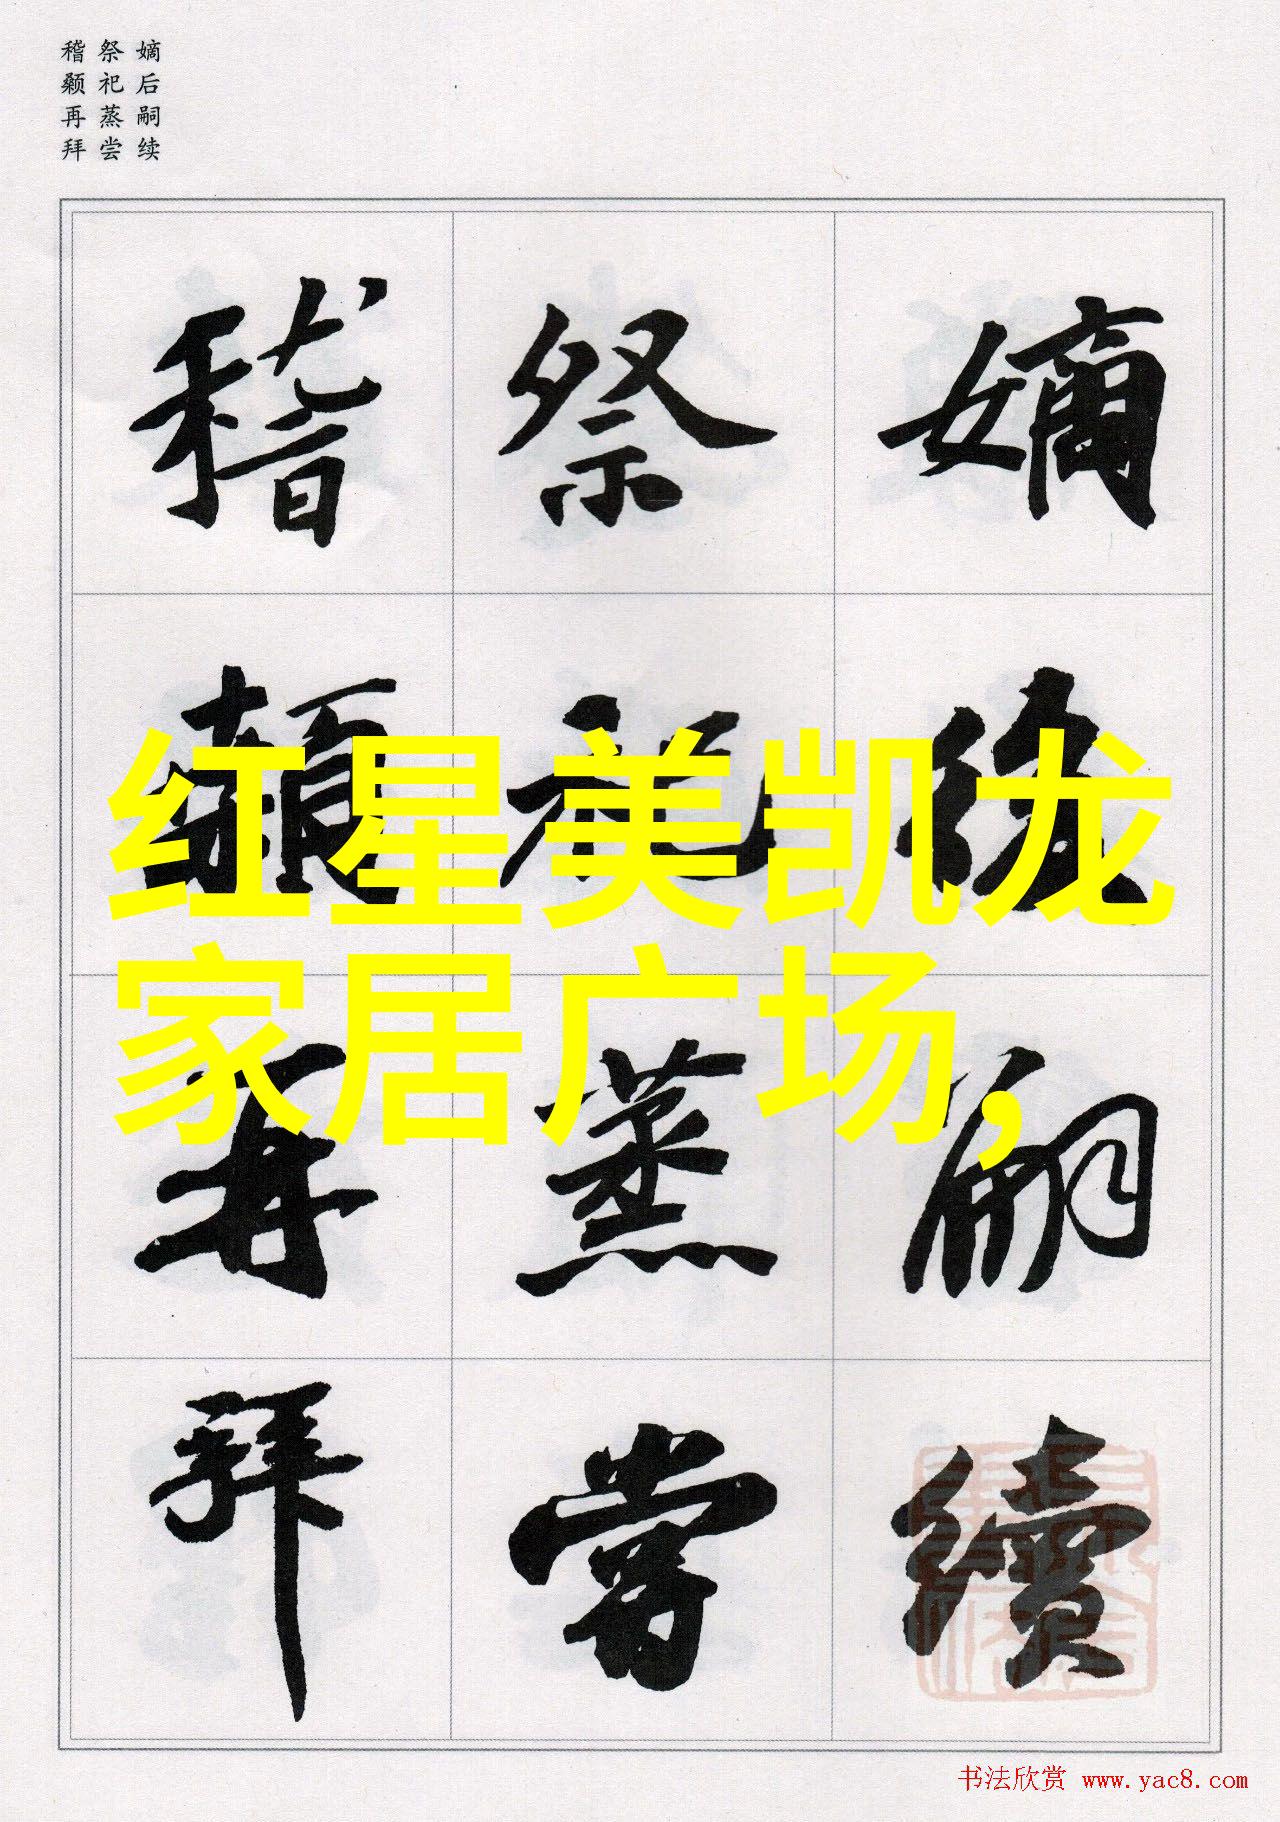 嫡后嗣续
祭祀蒸尝
稽颡再拜
嫡後嗣續
祭祀蒸嘗
稽顙再拜
红星美凯龙
家居广场,
书法欣赏 www.yac8.com